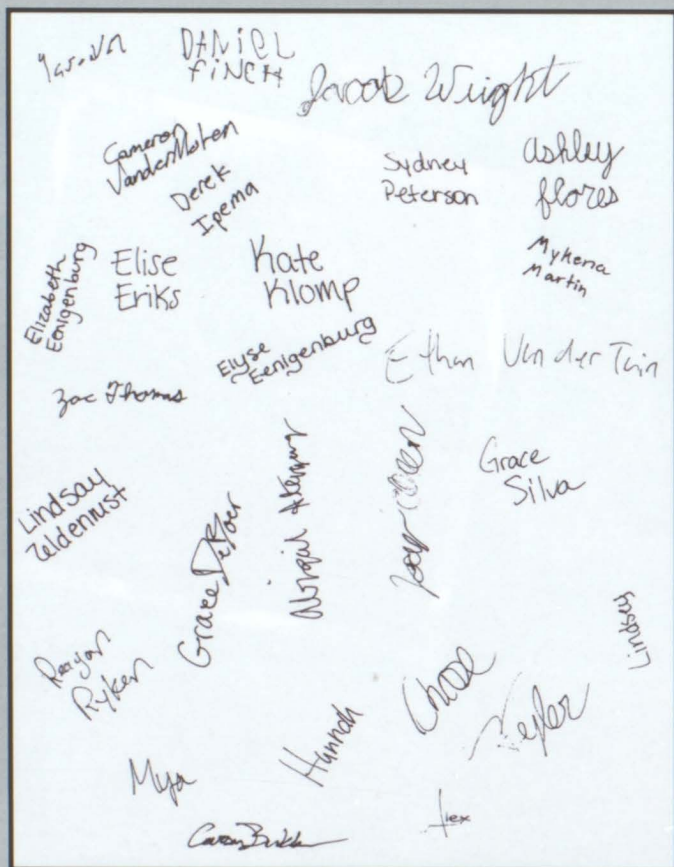 DANIEL
FINCH
Jacob Wright
Cameron
VanderMolen
Derek
Ipema
Sydney
Peterson
Ashley
flores
Elizabeth
Eenigenburg
Elise
Eriks
Kate
Klomp
Mykena
Martin
Elyse
Eenigenburg
Ethan Van der Tuin
Zac Thomas
Grace
Silva
Lindsay
Zeldenrust
Grace DeBoer
Abigail
Lindsey
Reagan
Ryken
Chase
Hannah
Mya